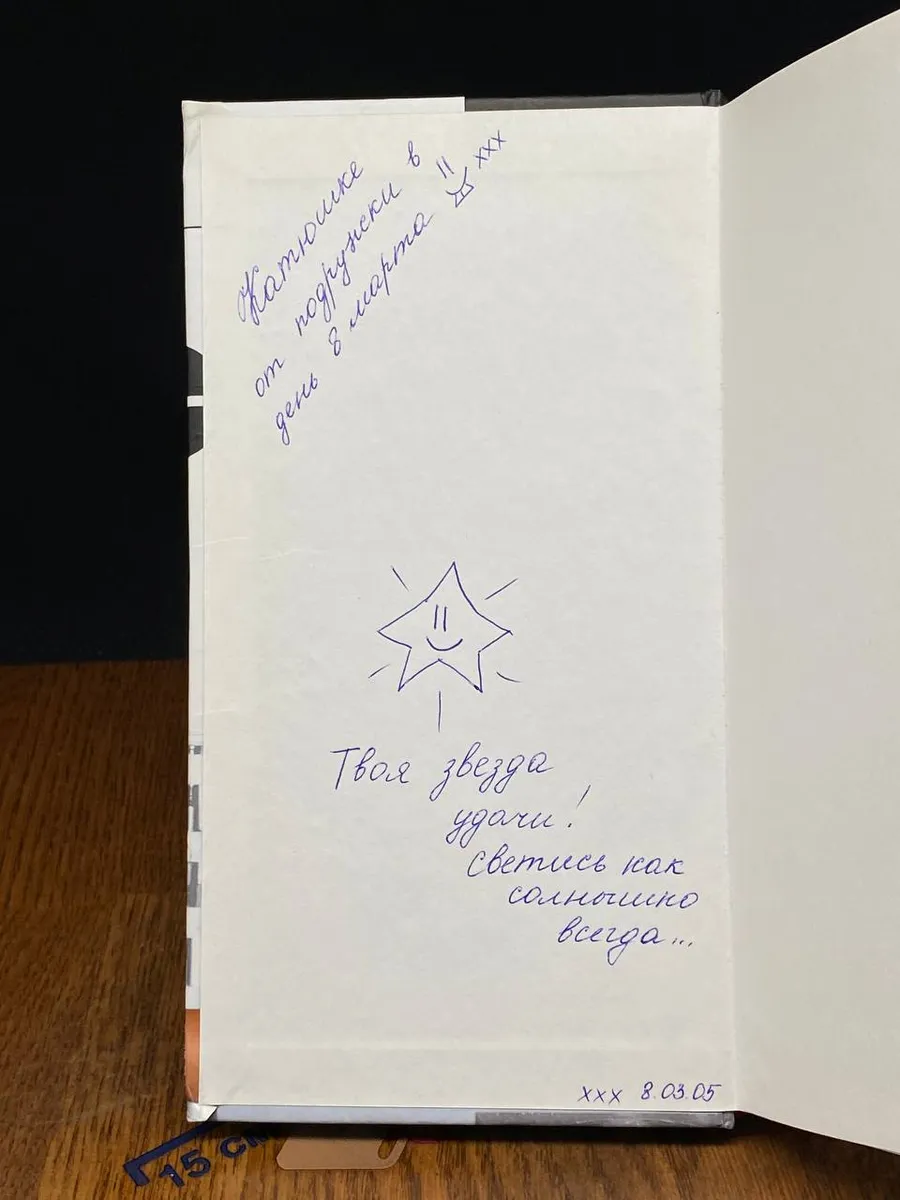 Катюшке
от подружки в
день 8 марта xxx
Твоя звезда
удачи!
светись как
солнышко
всегда...
xxx 8.03.05
15 см